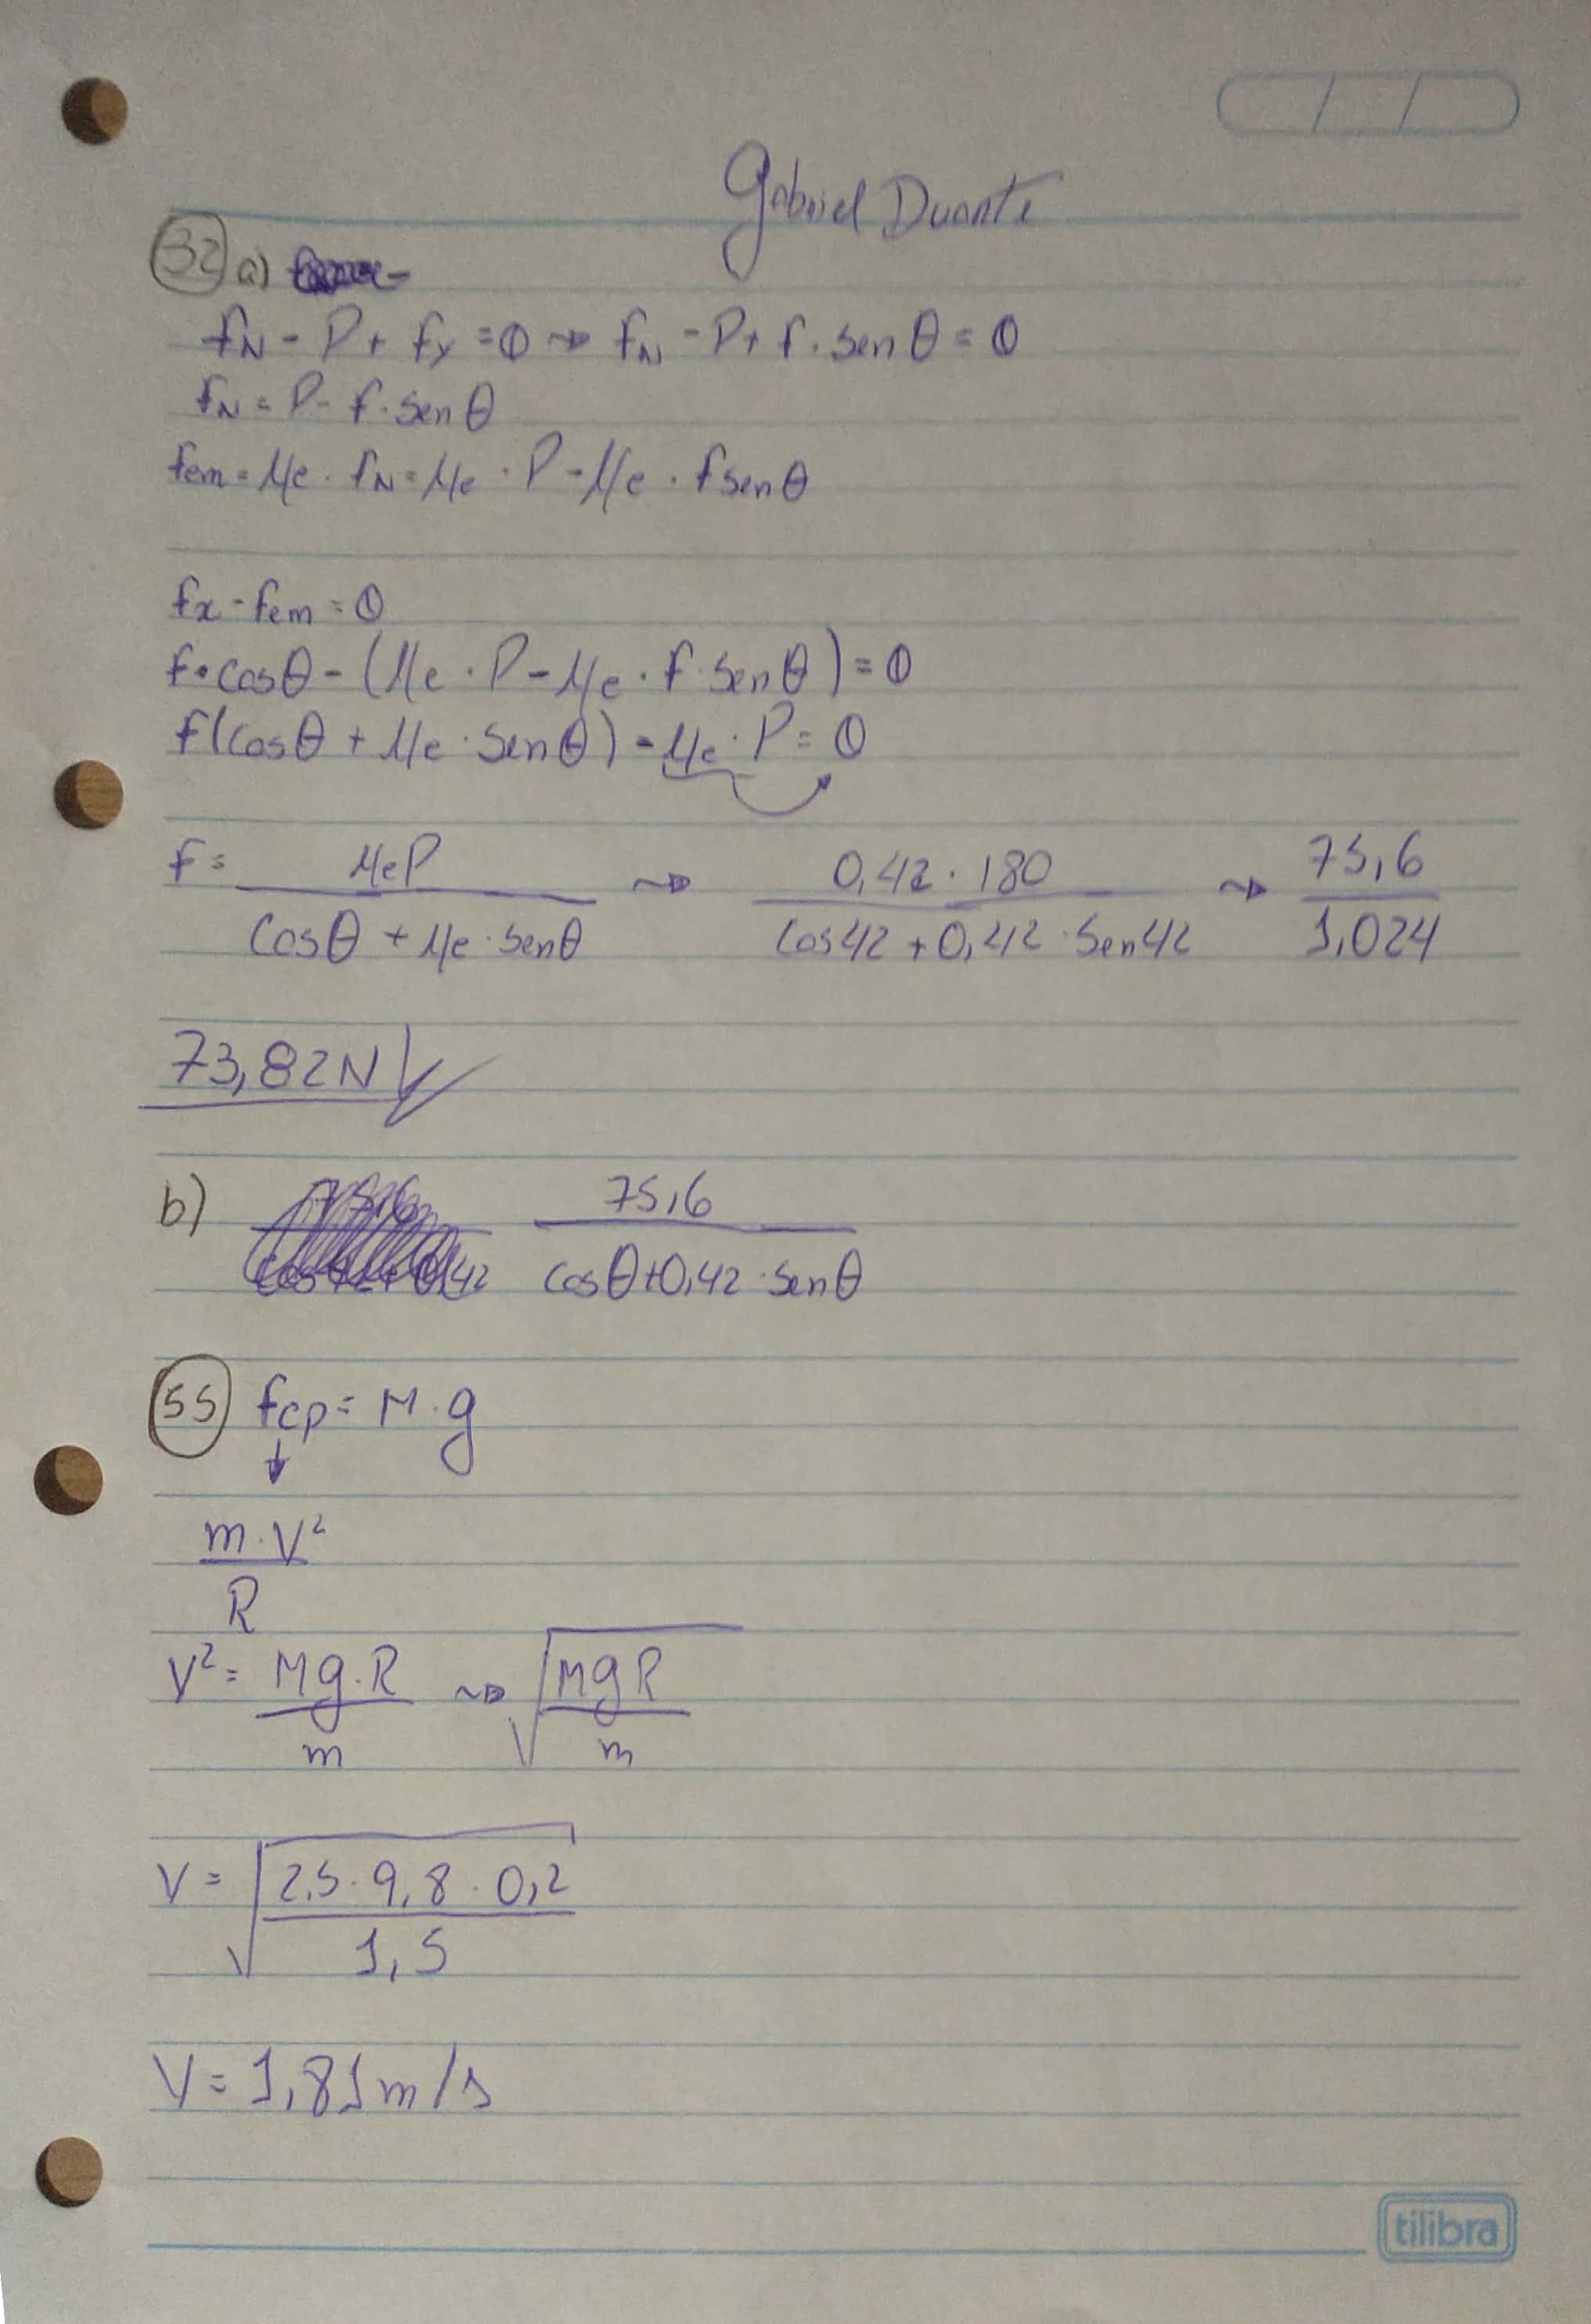 Gabriel Duarte
32 a)
fN - P + fy = 0 ⇝ fN - P + f · sen θ = 0
fN = P - f · sen θ
fem = μe · fN = μe · P - μe · f sen θ
fx - fem = 0
f · cos θ - (μe · P - μe · f · sen θ) = 0
f(cos θ + μe · sen θ) - μe · P = 0
f = μe P / cos θ + μe · sen θ ⇝ 0,42 · 180 / cos 42 + 0,42 · sen 42 ⇝ 75,6 / 1,024
73,82 N
b) 75,6 / cos θ + 0,42 · sen θ
55 fcp = M · g
↓
m · V² / R
V² = Mg · R / m ⇝ √ MgR / m
V = √ 2,5 · 9,8 · 0,2 / 1,5
V = 1,81 m/s
tilibra